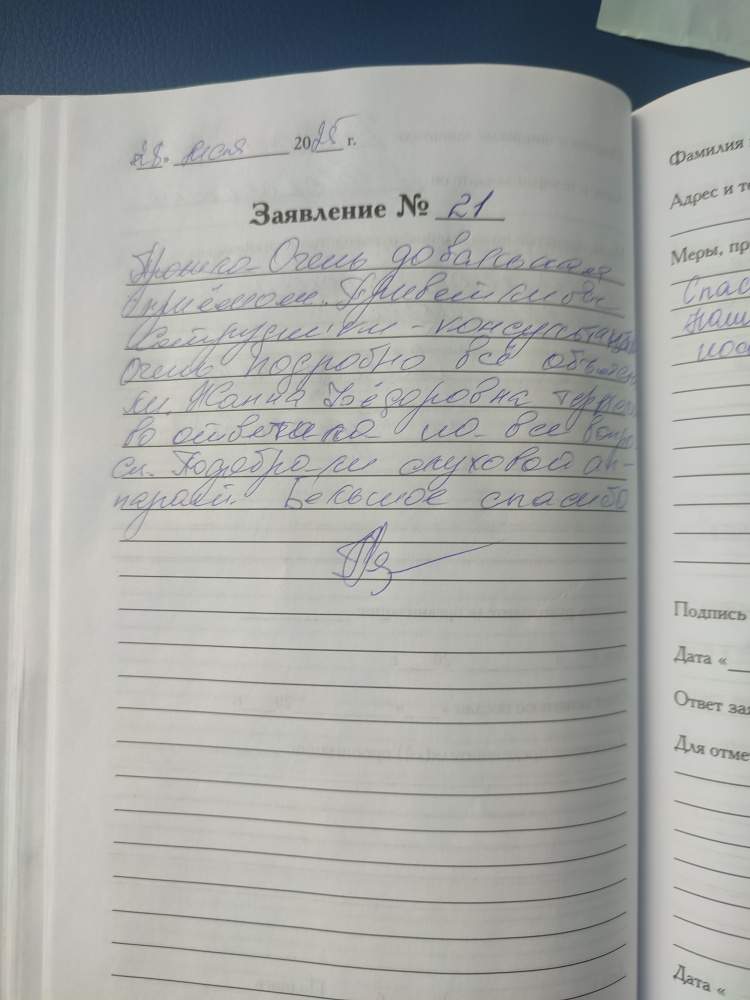 28. июля 2025 г.
Заявление № 21
Очень довольная
приёмом. Приветливые
Сотрудники - консультанты
Очень подробно всё объясни
ли. Жанна Фёдоровна терпели
во отвечала на все вопро
сы. Подобрали слуховой ап-
парат. Большое спасибо
Фамилия
Адрес и те
Меры, пр
Спас
наш
Подпись
Дата «
Ответ зая
Для отме
Дата «